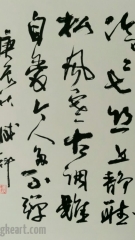 泠泠七丝上静聴
松风寒古调虽
自爱今人多不弹
庚辰
gheart.com